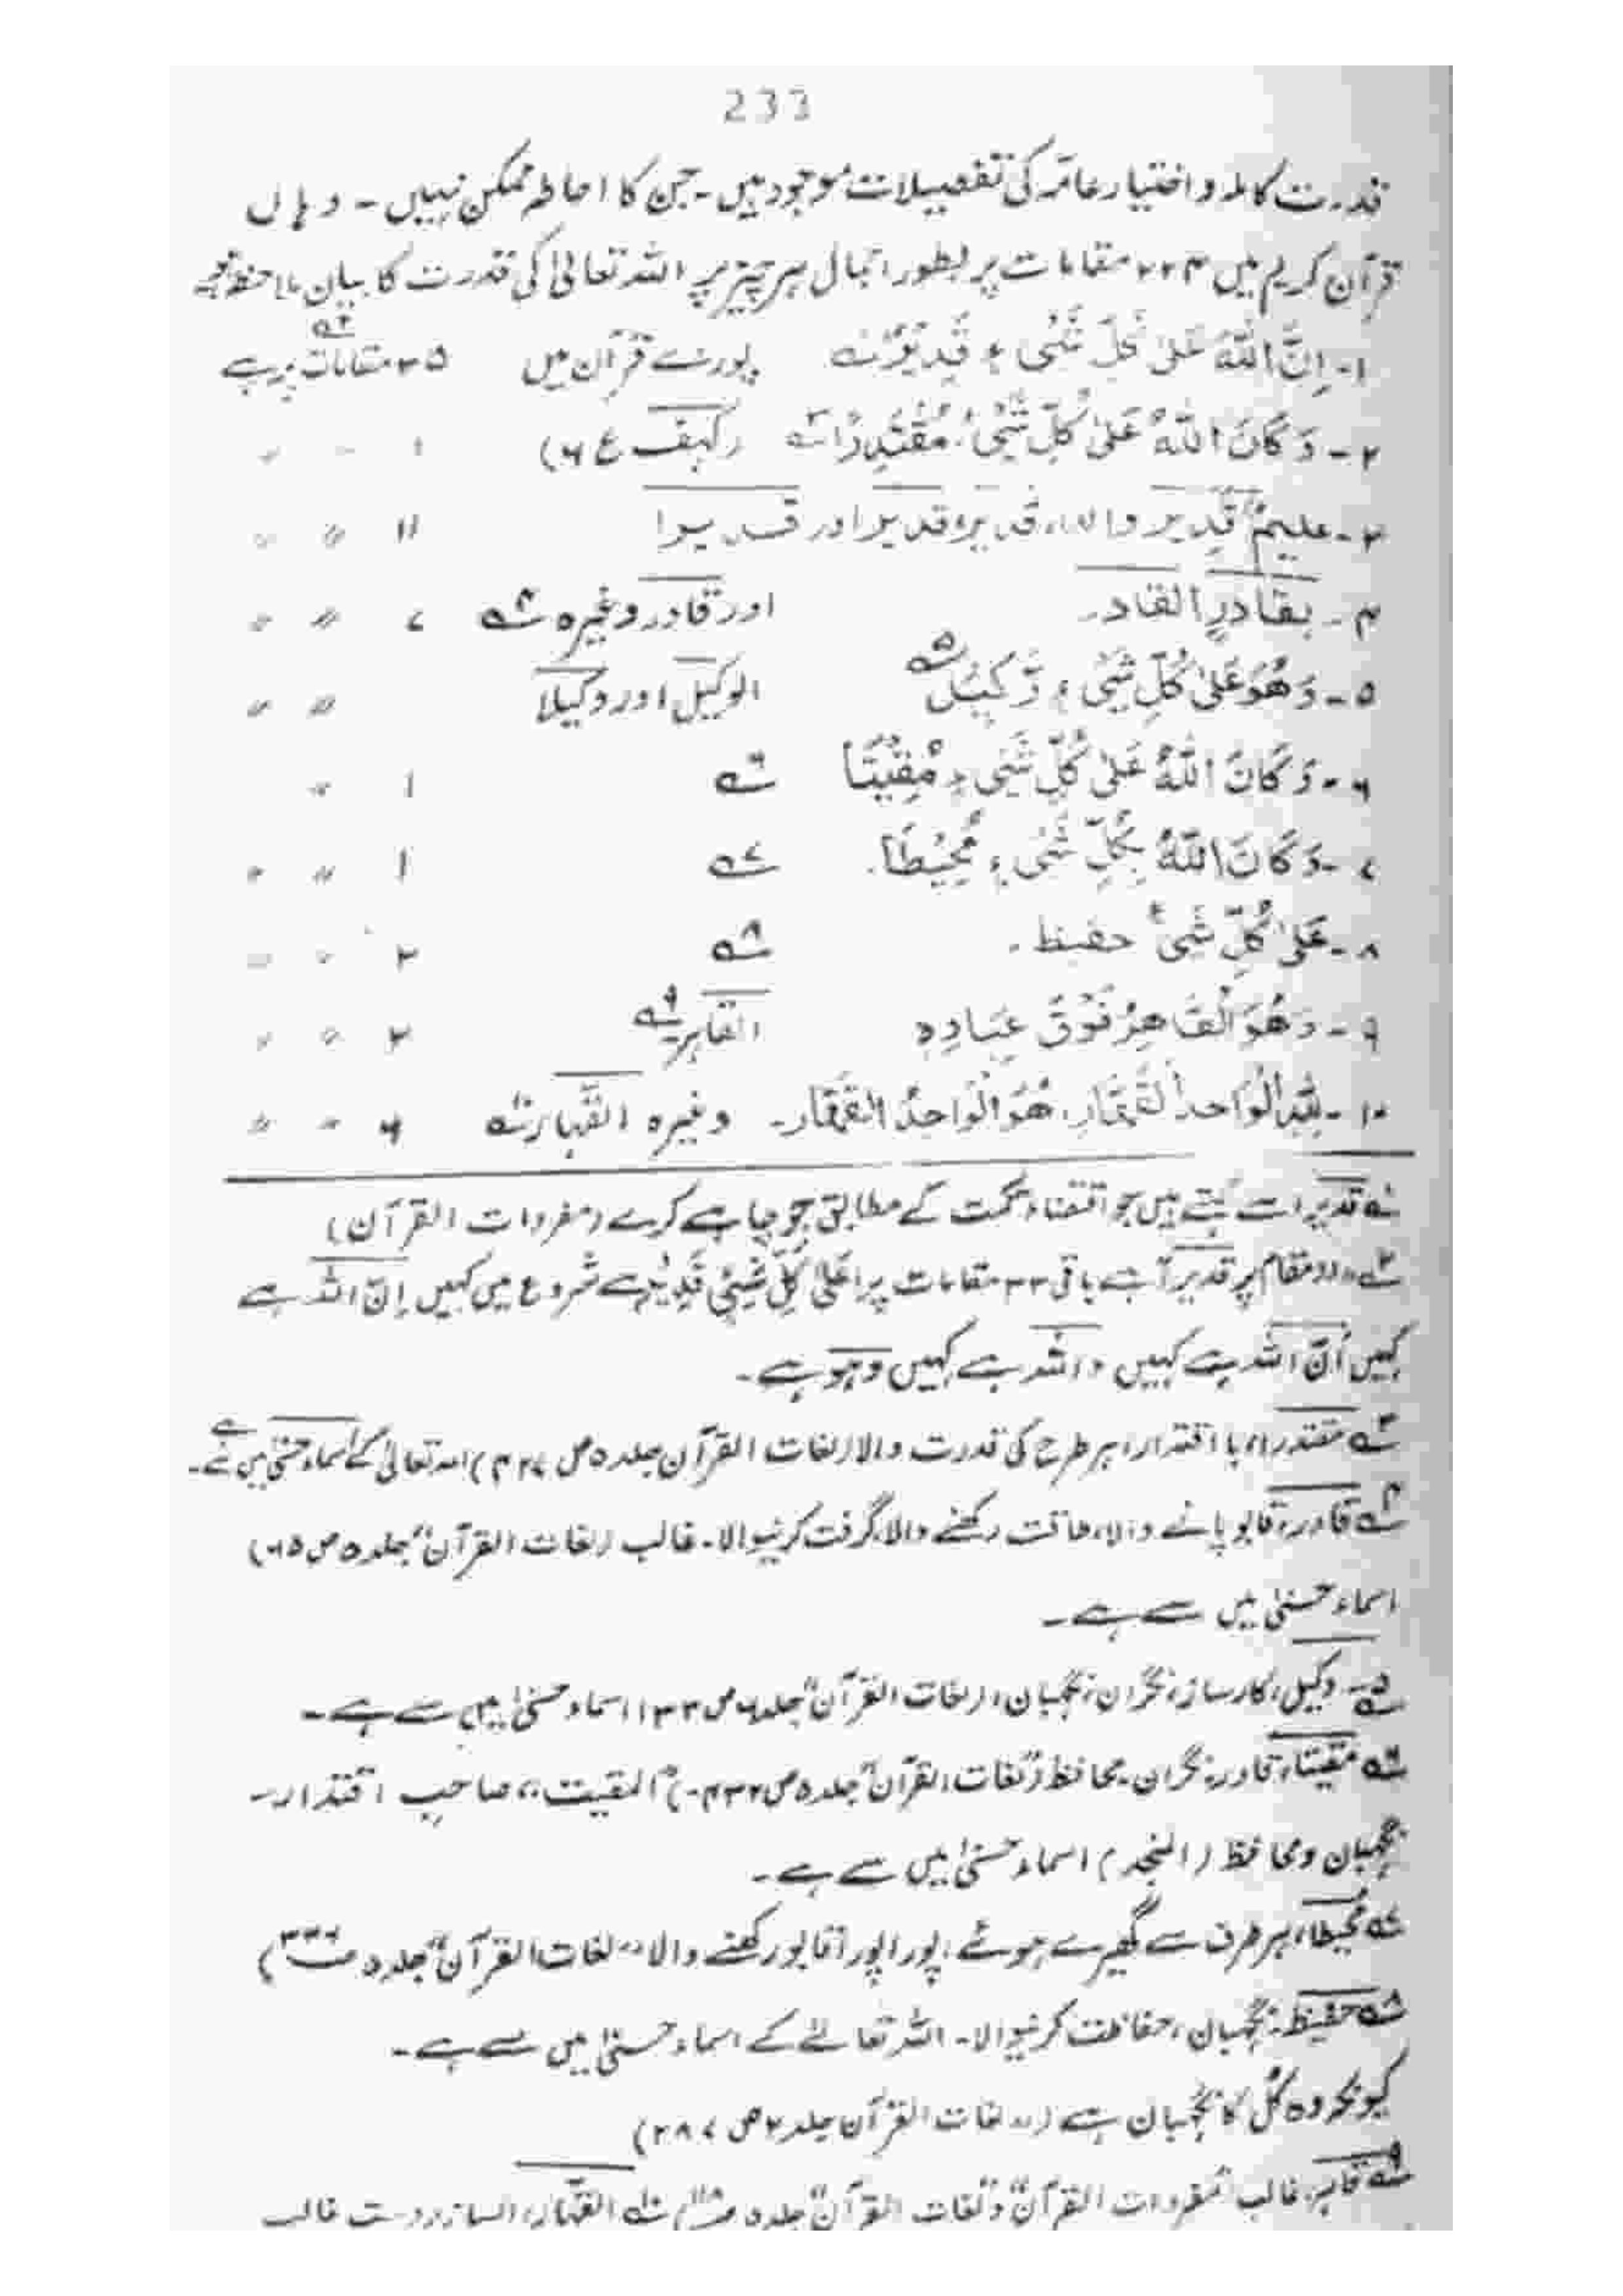 233
قدرت کاملہ و اختیار عامہ کی تفصیلات موجود ہیں۔ جن کا احاطہ ممکن نہیں۔ وہاں
قرآن کریم میں مقامات پر بطور اجمال ہر چیز پر اللہ تعالیٰ کی قدرت کا بیان ملاحظہ
۱۔ اِنَّ اللّٰهَ عَلیٰ كُلِّ شَیْءٍ قَدِیْرٌ پورے قرآن میں ۳۵ مقامات پر ہے
۲۔ وَكَانَ اللّٰهُ عَلیٰ كُلِّ شَیْءٍ مُّقْتَدِرًا (کہف ع ۶) ۱ 〃 〃
۳۔ علیمٌ قَدِیر والله قدیر، قدیر اور قدیرا ۱۱ 〃 〃
۴۔ بقادرٍ القادر۔ اور قادر وغیرہ ۴ ۷ 〃 〃
۵۔ وَهُوَ عَلیٰ كُلِّ شَیْءٍ وَّكِیْل ۵ الوکیل اور وکیلا 〃 〃
۶۔ وَكَانَ اللّٰهُ عَلیٰ كُلِّ شَیْءٍ مُّقِیْتًا ۶ ۱ 〃
۷۔ وَكَانَ اللّٰهُ بِكُلِّ شَیْءٍ مُّحِیْطًا۔ ۷ ۱ 〃 〃
۸۔ عَلیٰ كُلِّ شَیْءٍ حفیظ۔ ۸ ۲ 〃 〃
۹۔ وَهُوَ الْقَاهِرُ فَوْقَ عِبَادِهٖ القاہر ۹ ۲ 〃 〃
۱۰۔ لِلّٰهِ الْوَاحد الْقَهَّارِ، هُوَ الْوَاحِدُ الْقَهَّار۔ وغیرہ القہار ۱۰ ۶ 〃 〃
۱ قدیر اسے کہتے ہیں جو اقتضاء حکمت کے مطابق جو چاہے کرے (مفردات القرآن)
۲ مقام پر قدیر آہے باقی ۳۳ مقامات پر عَلیٰ كُلِّ شَیْءٍ قَدِیْر ہے شروع میں کہیں اِنَّ اللہ ہے
کہیں اَنَّ اللہ ہے کہیں واللہ ہے کہیں وھو ہے۔
۳ مقتدرا، با اقتدار، ہر طرح کی قدرت والا (لغات القرآن جلد ۵ ص ۴۲۷) اللہ تعالیٰ کے اسماء حسنیٰ میں سے ہے۔
۴ قادر، قابو پانے والا، طاقت رکھنے والا، گرفت کرنیوالا۔ غالب (لغات القرآن" جلد ۵ ص ۶۵)
اسماء حسنیٰ میں سے ہے۔
۵ وکیل، کارساز، نگران، نگہبان، (لغات القرآن" جلد ۶ ص ۱۳۳) اسماء حسنیٰ میں سے ہے۔
۶ مقیتا، قادر، نگران، محافظ (لغات القرآن" جلد ۵ ص ۴۳۲۔) "المقیت" صاحب اقتدار۔
نگہبان و محافظ (المنجد) اسماء حسنیٰ میں سے ہے۔
۷ محیطا، ہر طرف سے گھیرے ہوئے، پورا پورا قابو رکھنے والا "لغات القرآن" جلد ۵ ص ۳۳۶)
۸ حفیظ۔ نگہبان، حفاظت کرنیوالا۔ اللہ تعالےٰ کے اسماء حسنیٰ میں سے ہے۔
کیونکہ وہ کُل کا نگہبان ہے (لغات القرآن جلد ۲ ص ۲۸۷)
۹ قاہر، غالب "مفردات القرآن" و "لغات القرآن" جلد ۵ ۱۰ القہار، ایسا زبردست غالب